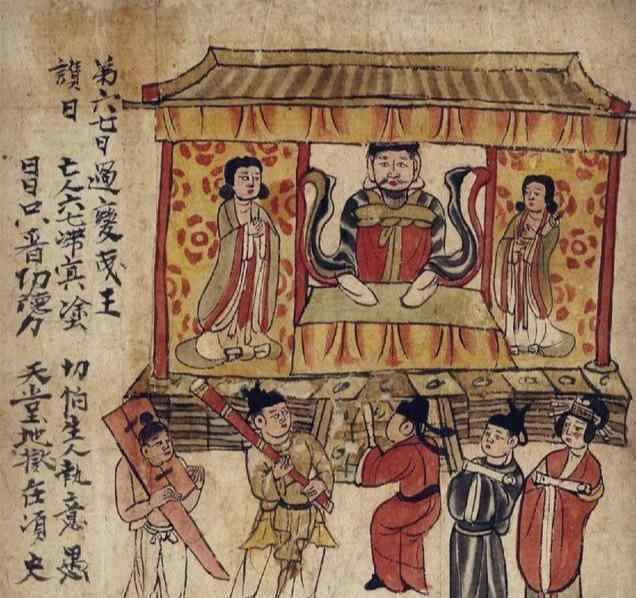 第六七日過變成王
讚曰 亡人六七滯冥塗 切怕生人執意愚
日日只看功德力 天堂地獄在須臾